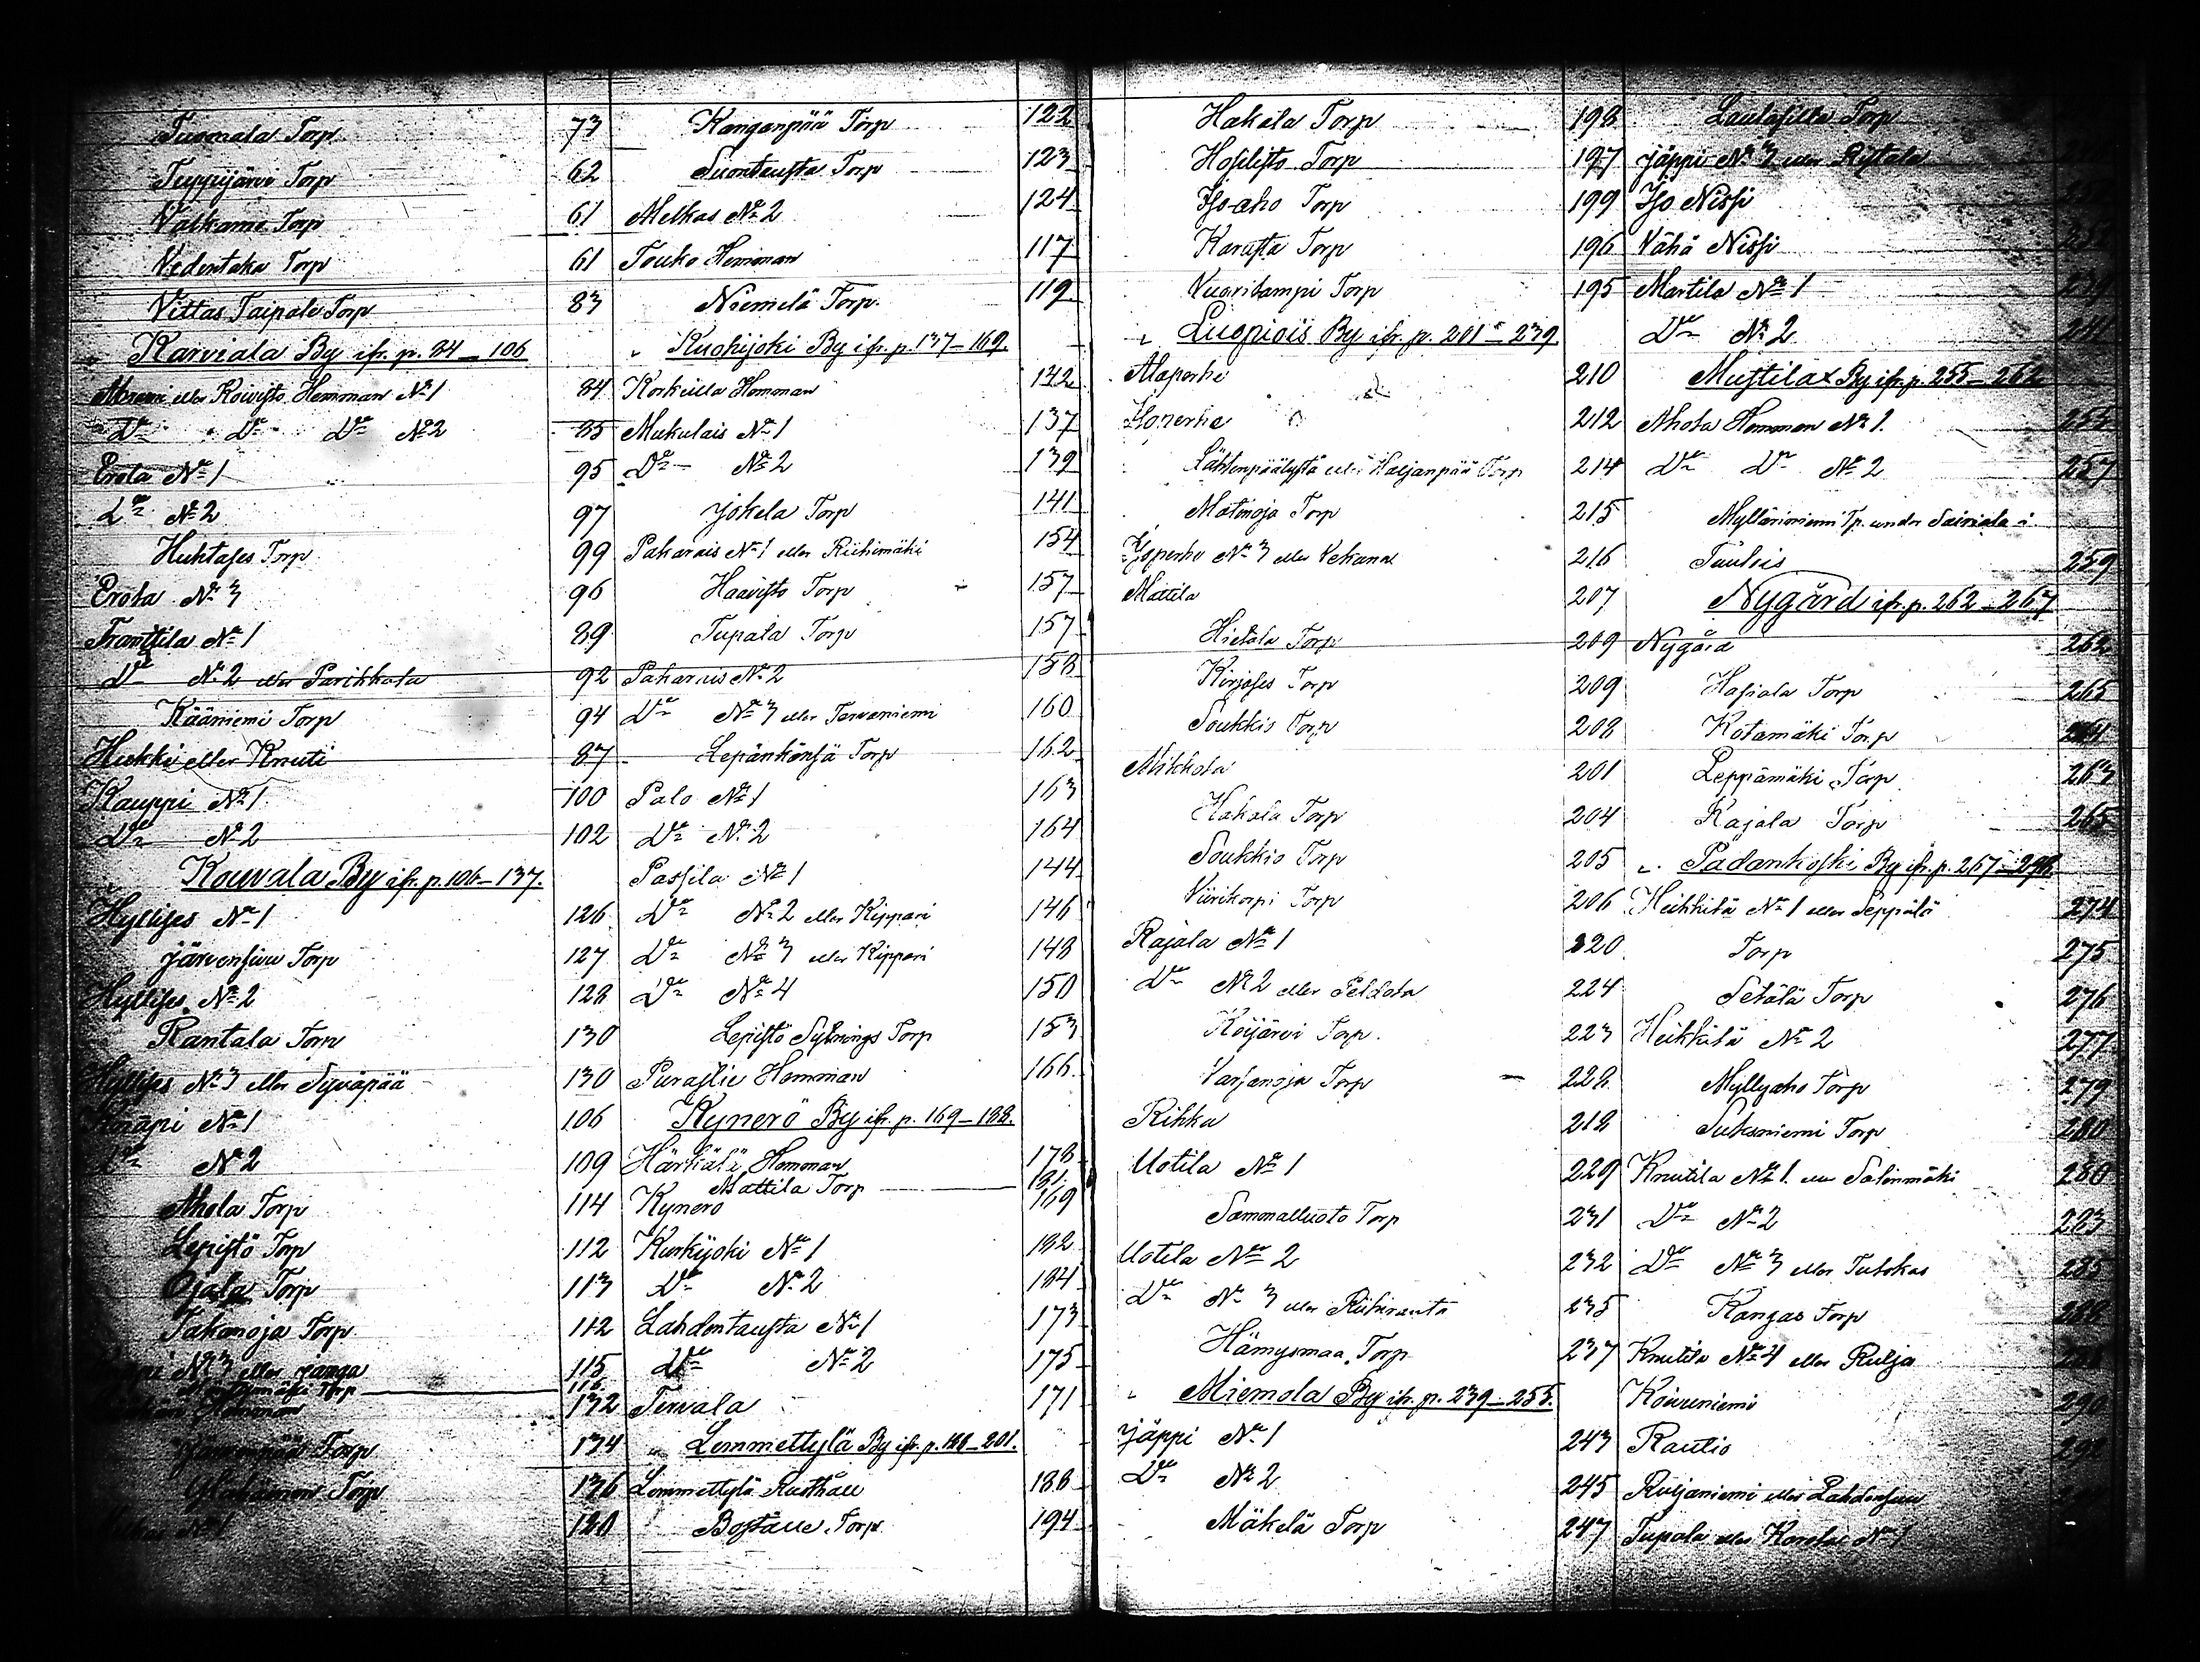 Tuomala Torp 73
Teyrijärvi Torp 62
Valkama Torp 61
Vedentaka Torp 61
Vittas Taipale Torp 83
" Karviala By ifr. p. 84–106
eller Koivisto Hemman No 1 84
Do Do Do No 2 85
Erola No 1 95
Do No 2 97
Huhtases Torp 99
Erola No 3 96
Franttila No 1 89
Do No 2 eller Parikkala 92
Kääniemi Torp 94
Hukki eller Knuti 87
Kauppi No 1 100
Do No 2 102
" Kouvala By ifr. p. 106–137.
Hyllises No 1 126
Järvensuu Torp 127
Hyllises No 2 128
Rantala Torp 130
Hyllises No 3 eller Syväpää 130
No 1 106
Do No 2 109
Ahola Torp 114
Lepistö Torp 112
Ojala Torp 113
Takanoja Torp 112
No 3 eller Janga 115
Torp 116
Hemman 132
Torp 134
Torp 136
No 1 120
Kanganpää Torp 122
Suontausta Torp 123
Melkas No 2 124
Touko Hemman 117
Niemelä Torp. 119
" Kuohijoki By ifr. p. 137–169.
Korkeilla Hemman 142
Mukulais No 1 137
Do No 2 139
Jokela Torp 141
Paharais No 1 eller Riihimäki 154
Haavisto Torp 157
Tupala Torp 157
Paharais No 2 158
Do No 3 eller Tervaniemi 160
Lepänkönsä Torp 162
Palo No 1 163
Do No 2 164
Passila No 1 144
Do No 2 eller Kippari 146
Do No 3 eller Kippari 148
Do No 4 150
Lepistö Sytnings Torp 153
Purastie Hemman 166
Kynerö By ifr. p. 169–188.
Härkälä Hemman 178
Mattila Torp 181
Kynerö 169
Kurkijoki No 1 182
Do No 2 184
Lahdentausta No 1 173
Do No 2 175
Tervala 171
" Lemmettylä By ifr. p. 188–201.
Lemmettylä Rusthåll 188
Boställe Torp 194
Hakala Torp 198
Hosilisto Torp 197
Iso-aho Torp 199
Karusta Torp 196
Vuorilampi Torp 195
" Luopiois By ifr. p. 201–239
Alaperhe 210
Isoperhe 212
Lähtenpäälystä eller Haljanpää Torp 214
Matinoja Torp 215
Isoperhe No 3 eller Vekana 216
Mattila 207
Hietala Torp 209
Kirjases Torp 209
Soukkio Torp 208
Mikkola 201
Hakala Torp 204
Soukkio Torp 205
Viirikorpi Torp 206
Rajala No 1 220
Do No 2 eller Peldola 224
Koijärvi Torp. 223
Varjenoja Torp 228
Rihka 218
Uotila No 1 229
Sammalluoto Torp 231
Uotila No 2 232
Do No 3 eller Riihiranta 235
Hämysmaa Torp 237
" Miemola By ifr. p. 239–255.
Jäppi No 1 243
Do No 2 245
Mäkelä Torp 247
Laulasilla Torp
Jäppi No 3 eller Ristala
Iso Nissi
Vähä Nissi
Martila No 1
Do No 2 241
Mustila By ifr. p. 255–262
Ahola Hemman No 1. 255
Do Do No 2 257
Myllärinniemi Tp. under Sairiala i
Taulis 259
Nygård ifr. p. 262–267
Nygård 262
Hasiala Torp 265
Kotamäki Torp 264
Leppämäki Torp 263
Rajala Torp 265
" Padankoski By ifr. p. 267–298.
Heikkilä No 1 eller Seppälä 274
Torp 275
Setälä Torp 276
Heikkilä No 2 277
Myllyaho Torp 279
Suksniemi Torp 280
Knutila No 1. eller Salinmäki 280
Do No 2 283
Do No 3 eller Tutokas 285
Kangas Torp 288
Knutila No 4 eller Rulja
Koivuniemi 290
Rautio 292
Ruljaniemi eller Lahdensuu
Tupala eller Korolas No 1